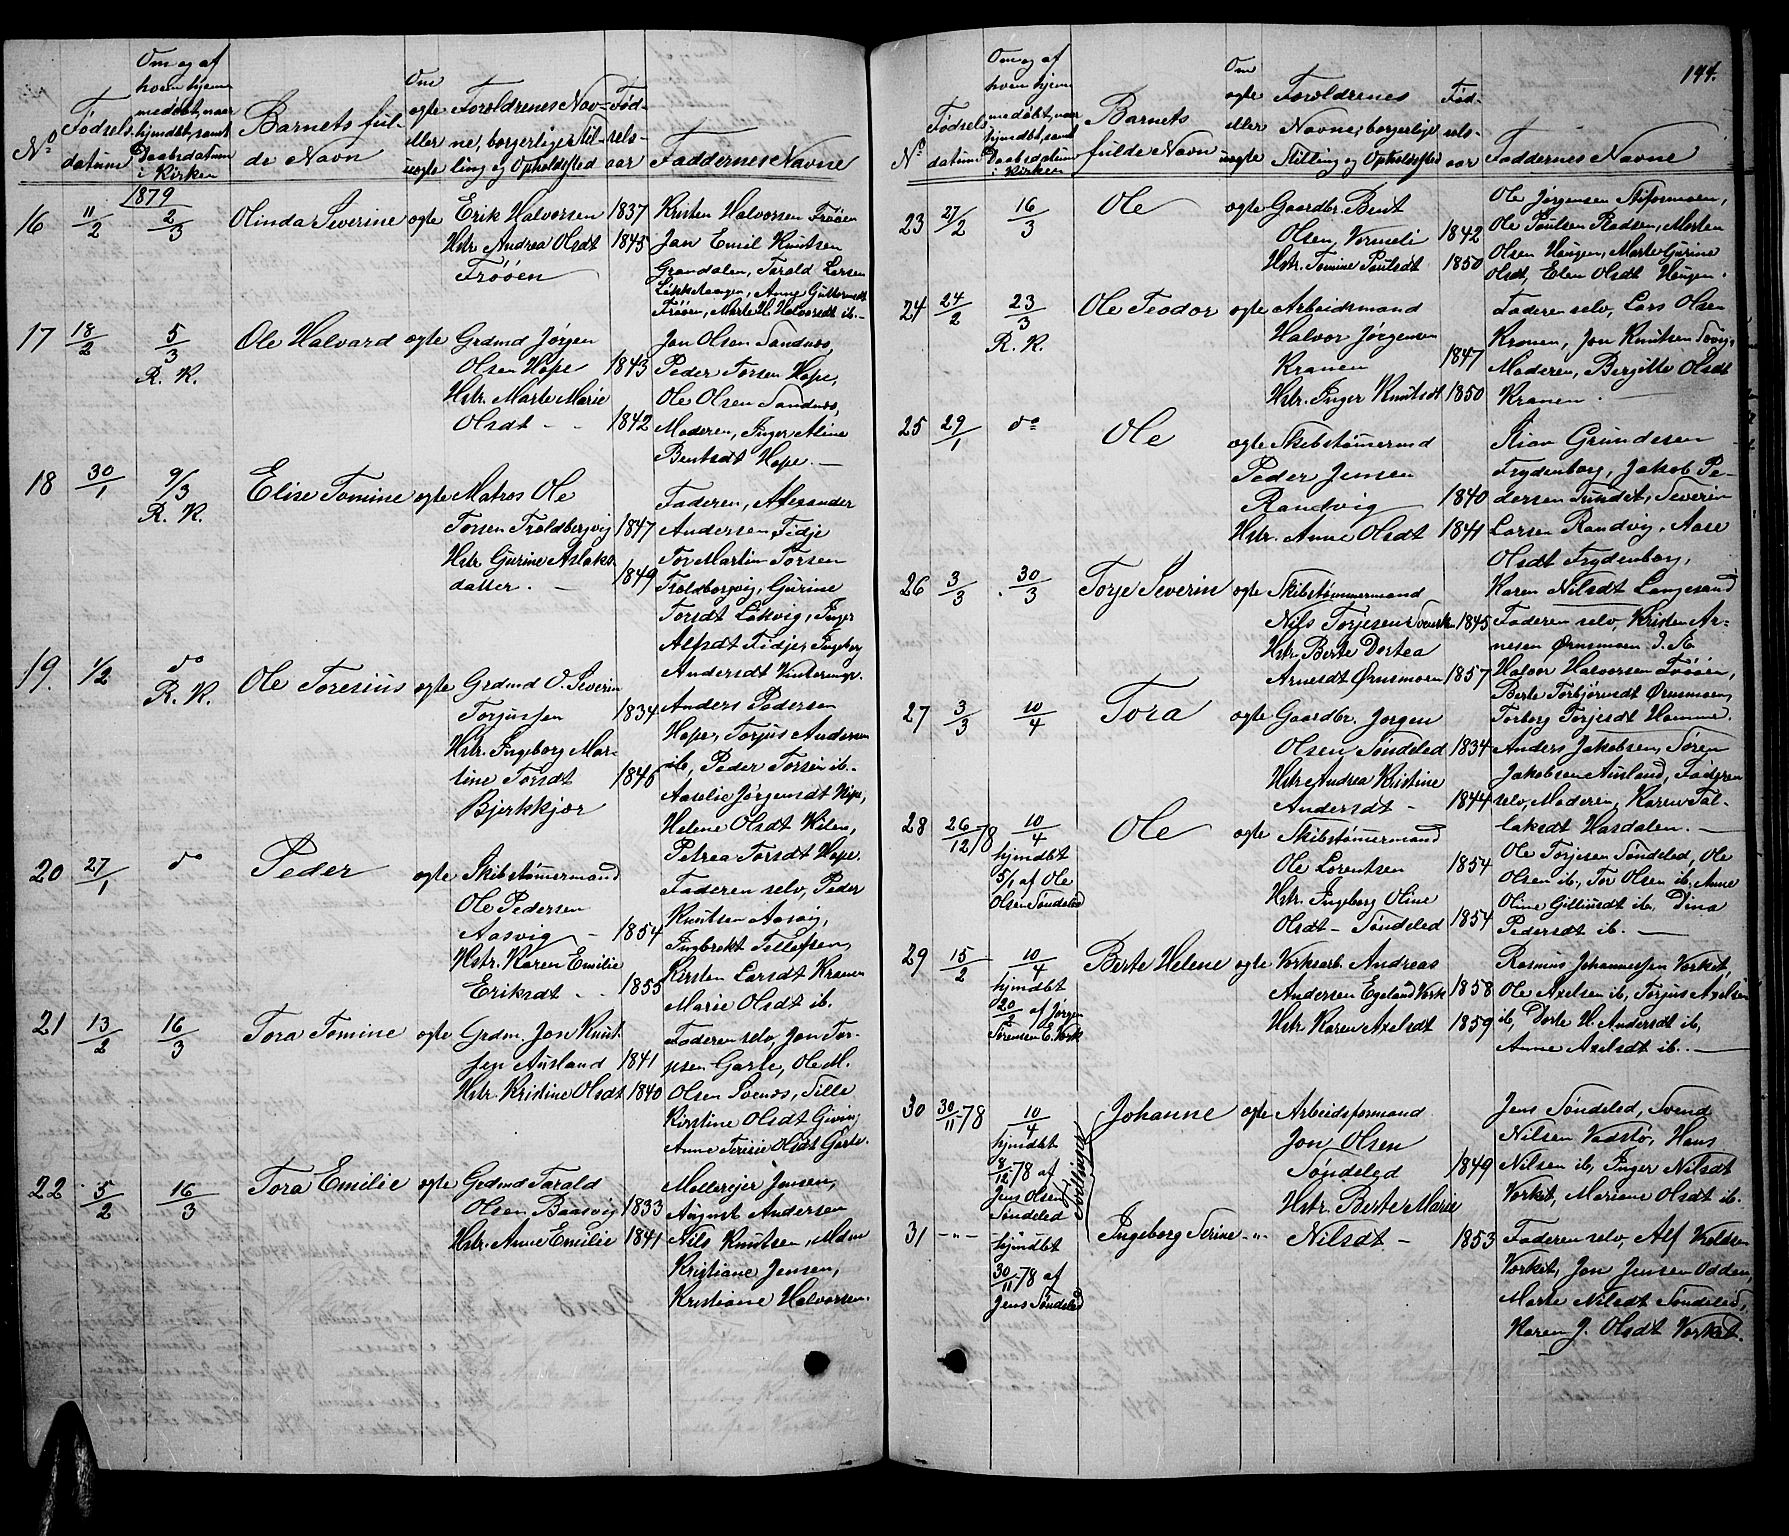 Nº
Fødsels
datum
Om og af
hvem hjem-
medøbt, naar
hjmdbt, samt
Daabsdatum
i Kirken
Barnets ful-
de Navn
Om
ægte
eller
uægte
Foreldrenes Nav-
ne, borgerlige Stil-
ling og Opholdssted
Fød-
sels-
aar
Faddernes Navne
1879
16 11/2 2/3 Olinda Severine ægte Erik Halvorsen 1837 Kristen Halvorsen Frøøen
Hstr Andrea Olsdt 1845 Jan Emil Knutsen
Frøøen Grandalen, Tarald Larsen
Anne Guttormsdt
Frøøen, Marte H. Halvorsdt ib.
17 18/2 5/3 Ole Halvard ægte Grdmd Jørgen Jon Olsen Sandnæs,
R. K. Olsen Hope 1843 Peder Torsen Hope,
Hstr. Marte Marie Ole Olsen Sandnæs,
Olsdt - - 1842 Moderen, Inger Aline
Bentsdt Hope. —
18 30/1 9/3 Elise Tomine ægte Matros Ole Faderen, Alexander
R. K. Torsen Troldbergvig 1847 Andersen Fidje
Hstr Gurine Aslaks- Tor Martin Torsen
datter. - 1849 Troldbergvig, Gurine
Torsdt Lakvig, Inger
Alfsdt Fidje, Ingeborg
Andersdt
19. 1/2 do Ole Toresius ægte Grdmd O. Severin Anders Pedersen
R. K. Torjussen 1834 Hope, Torjus Andersen
Hstr. Ingeborg Mar- ib, Peder Torsen ib.
tine Torsdt 1846 Aaselie Jørgensdt Hope,
Bjerkkjær Helene Olsdt Kilen,
Petrea Torsdt Hope.
20 27/1 do Peder ægte Skibstømermand Faderen selv, Peder
Ole Pedersen Knutsen Aasvig,
Aasvig - 1854 Ingbrekt Tellefsen,
Hstr. Karen Emilie Kirsten Larsdt Kranen
Eriksdt - - 1855 Marie Olsdt ib.
21 13/2 16/3 Tora Tomine ægte Grdm. Jon Knut- Faderen selv, Jon Tor-
sen Ausland 1841 jesen Garte, Ole M.
Hstr. Kristine Olsdt 1840 Olsen Svenes, Tille
Kirstine Olsdt
Anne Teresie Olsdt Garte.
22 5/2 16/3 Tora Emilie ægte Grdmd Tarald Møllerejer Jensen,
Olsen Baasvig 1833 August Andersen
Hstr. Anne Emilie 1841 Nils Knutsen,
Kristiane Jensen,
Kristiane Halvorsen.
144.
Nº
Fødsels
datum
Om og af
hvem hjem
medøbt, naar
hjmdbt, samt
Daabsdatum
i Kirken
Barnets
fulde Navn
Om
ægte
eller
uægte
Foreldrenes
Navne, borgerlige
Stilling og Opholdssted
Fød-
sels-
aar
Faddernes Navne
23 27/2 16/3 Ole ægte Gaardbr. Bent Ole Jørgensen
Olsen, Vormeli 1842 Ole Poulsen Rødsen, Morten
Hstr. Tomine Poulsdt 1850 Olsen Haugen, Marte Gurine
Olsdt, Elen Olsdt Haugen.
24 24/2 23/3 Ole Teodor ægte Arbeidsmand Faderen selv, Lars Olsen
R. K. Halvor Jørgensen Kranen, Jon Knutsen
Kranen 1847 Moderen, Bergitte Olsdt
Hstr. Inger Knutsdt 1850 Kranen. —
25 29/1 do Ole ægte Skibstømermd Kian Grundesen
Peder Jensen Frydenborg, Jakob Pe-
Randvig 1840 dersen Sundet, Severin
Hstr. Anne Olsdt 1841 Larsen Randvig, Aase
Olsdt Frydenborg,
Karen Nilsdt Langesand
26 3/3 30/3 Torje Severin ægte Skibstømmermand Faderen selv, Kristen Ar-
Nils Torjesen 1845 nesen Ørnsmoen
Hstr. Berte Dortea Halvor Halvorsen Frøøen,
Arnesdt Ørnsmoen 1857 Berte Torbjørnsdt Ørnsmoen,
Torborg Torjesdt Hammer.
27 3/3 10/4 Tora ægte Gaardbr. Jørgen Anders Jakobsen, Søren
Olsen Søndeled 1834 Jakobsen Ausland, Faderen
Hstr Andrea Kristine selv, Moderen, Karen Tal-
Andersdt - 1844 laksdt Hasdalen. —
28 26/12 78 10/4 Ole ægte Skibstømermand Ole Torjesen Søndeled, Ole
hjmdbt Ole Lorentsen 1854 Olsen ib, Tor Olsen ib, Anne
5/1 af Ole Hstr. Ingeborg Oline Oline Gillundt ib, Dina
Olsen Søndeled Olsdt - Søndeled 1854 Pedersdt ib. —
29 15/2 10/4 Berte Helene ægte Verksarb. Andreas Rasmus Johannessen Verket,
hjmdbt Andersen Egeland Verk 1858 Ole Axelsen ib, Torjus Axelsen
20/2 af Jørgen Hstr Karen Axelsdt 1859 ib, Dorte H. Andersdt ib,
Sørensen E. Verk Anne Axelsdt ib. —
30 30/11-78 10/4 Johanne ægte Arbeidsformand Jens Søndeled, Svend
hjmdbt Jon Olsen Nilsen Vadstø, Hans
8/12-78 af Søndeled 1849 Nilsen ib, Inger Nilsdt
Jens Olsen Hstr. Berte Marie Verket, Mariane Olsdt ib.
Søndeled
Tvillinger
31 -"- hjmdbt Ingeborg Serine -"- Nilsdt - 1853 Faderen selv, Alf Keldsen
30/11-78 af Verket, Jon Jensen Odden,
Jens Søndeled Marte Nilsdt Søndeled,
Karen J. Olsdt Verket.